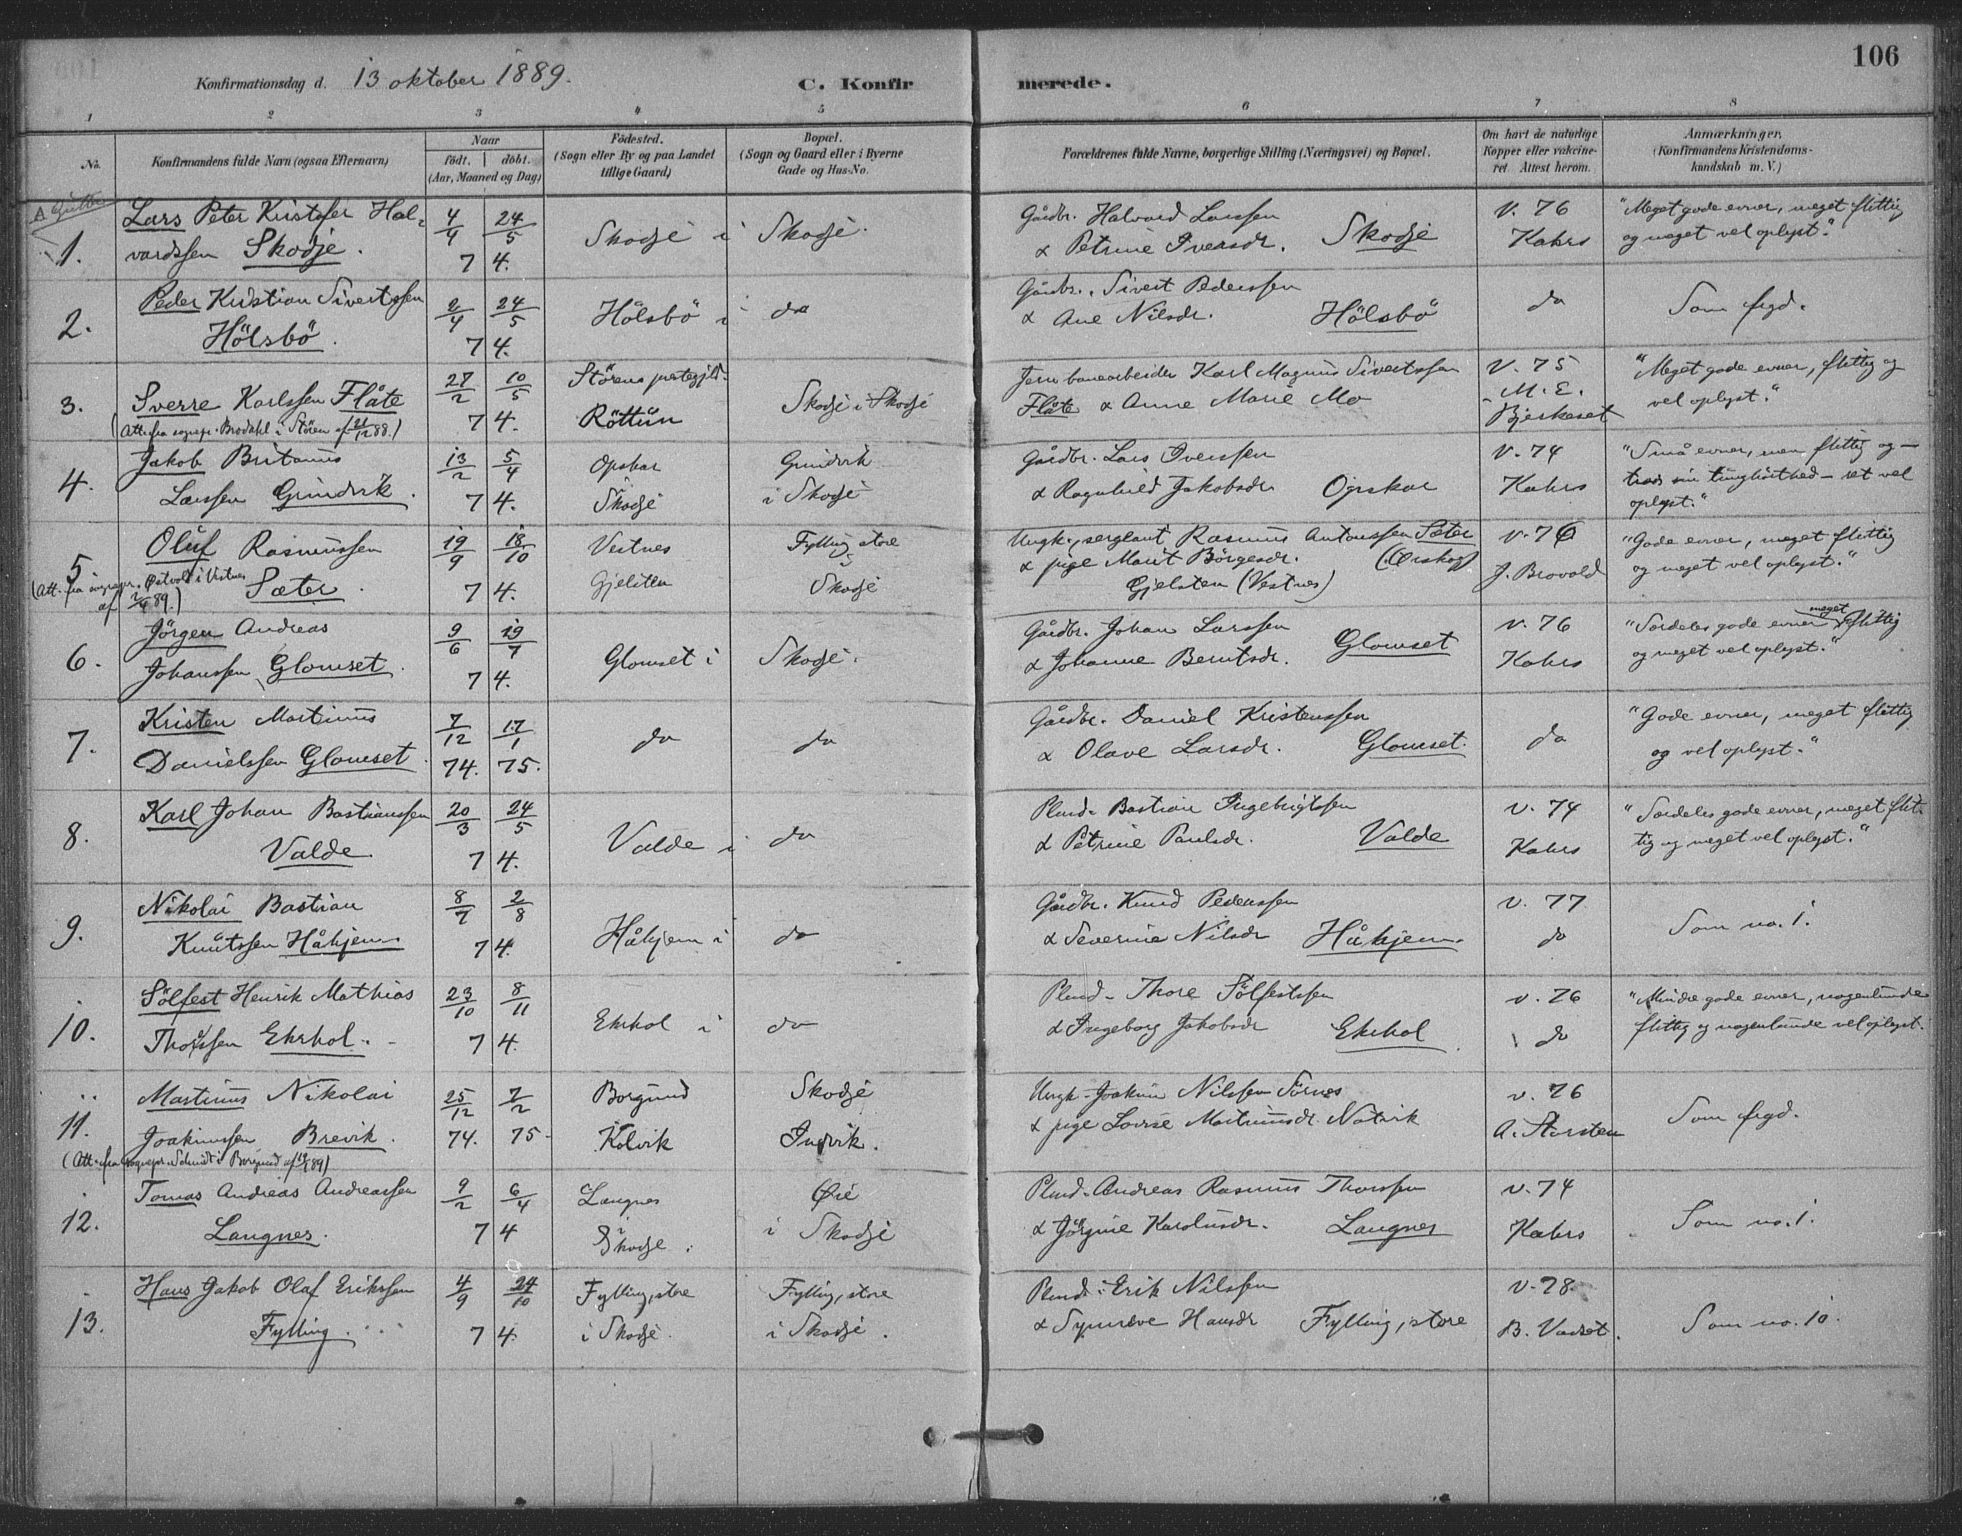 106
Konfirmationsdag d. 13 oktober 1889. C. Konfirmerede.
1 2 3 4 5 6 7 8
No. Konfirmandens fulde Navn (ogsaa Efternavn) Naar födt. döbt. (Aar, Maaned og Dag) Födested. (Sogn eller By og paa Landet tillige Gaard) Bopæl. (Sogn og Gaard eller i Byerne Gade og Hus-No. Forældrenes fulde Navne, borgerlige Stilling (Næringsvei) og Bopæl. Om havt de naturlige Kopper eller vakcineret. Attest herom. Anmærkninger. (Konfirmandens Kristendomskundskab m. V.)
A Gutter
1. Lars Peter Kristofer Halvardssen Skodje. 4/4 24/5 74. Skodje i Skodje. Gårdbr. Halvard Larssen & Petrine Iversdr. Skodje V. 76 Kahrs "Meget gode evner, meget flittig og meget vel oplyst."
2. Peder Kristian Sivertssen Hölsbö. 2/4 24/5 74. Hölsbö i do Gårdbr. Sivert Pederssen & Ane Nilsdr. Hölsbö do Som frgd.
3. Sverre Karlssen Flåte 27/2 10/5 74. Störens prestegjld. Röttum Skodje i Skodje Jernbanearbeider Karl Magnus Sivertssen Flåte & Anne Marie Mo V. 75 M. E. Bjerkeset "Meget gode evner, flittig og vel oplyst."
(Att. fra sognepr. Brodahl i Stören af 21/12 88.)
4. Jakob Britanus Larssen Grindvik. 13/2 5/4 74. Opskar Skodje Grindvik i Skodje Gårdbr. Lars Iverssen & Ragnhild Jakobsdr. Opskar V. 74 Kahrs "Små evner, men flittig og – trods sin tunghörthed – ret vel oplyst."
5. Oluf Rasmussen Sæter. 19/9 18/10 74. Vestnes Gjelsten Fylling, store i Skodje Ungk., sergeant Rasmus Antonssen Sæter (Ørskog) & pige Marit Börgesdr. Gjelsten (Vestnes) V. 76 J. Brovold "Gode evner, meget flittig og meget vel oplyst."
(Att. fra sognepr. Østvold i Vestnes af 2/4 89.)
6. Jörgen Andreas Johanssen Glomset. 9/6 19/7 74. Glomset i Skodje. Gårdbr. Johan Larssen & Johanne Berntsdr. Glomset V. 76 Kahrs "Særdeles gode evner, meget flittig og meget vel oplyst."
7. Kristen Martinus Danielssen Glomset. 7/12 74. 17/1 75. do do Gårdbr. Daniel Kristenssen & Olave Larsdr. Glomset. do "Gode evner, meget flittig og vel oplyst."
8. Karl Johan Bastianssen Valde. 20/3 24/5 74. Valde i do Plmd. Bastian Ingebrigtssen & Petrine Paulsdr. Valde V. 74 Kahrs "Særdeles gode evner, meget flittig og meget vel oplyst."
9. Nikolai Bastian Knutssen Håhjem. 8/7 2/8 74. Håhjem i do Gårdbr. Knud Pederssen & Severine Nilsdr Håhjem. V. 77 do Som no. 1.
10. Sölfest Henrik Mathias Thorssen Ekrhol. 23/10 8/11 74. Ekrhol i do Plmd. Thore Sölfestssen & Ingeborg Jakobsdr Ekrhol V. 76 do "Mindre gode evner, nogenlunde flittig og nogenlunde vel oplyst.
11. Martinus Nikolai Joakimssen Brevik. 25/12 74. 7/2 75. Borgund Kolvik Skodje Indvik. Ungk. Joakim Nilssen Sörnes & pige Lovise Martinusdr. Notvik V. 76 A. Stersten Som frgd.
(Att. fra sognepr. Schmidt i Borgund af 89)
12. Tomas Andreas Andreassen Langnes. 9/2 6/4 74 Langnes i Skodje. Øie i Skodje Plmd. Andreas Rasmus Thorssen & Jörgine Karolusdr. Langnes V. 74 Kahrs Som no. 1.
13. Hans Jakob Olaf Erikssen Fylling. 4/9 24/10 74. Fylling, store i Skodje. Fylling, store i Skodje. Plmd. Erik Nilssen & Synneve Hansdr Fylling, store V. 78 B. Vadset. Som no. 10.